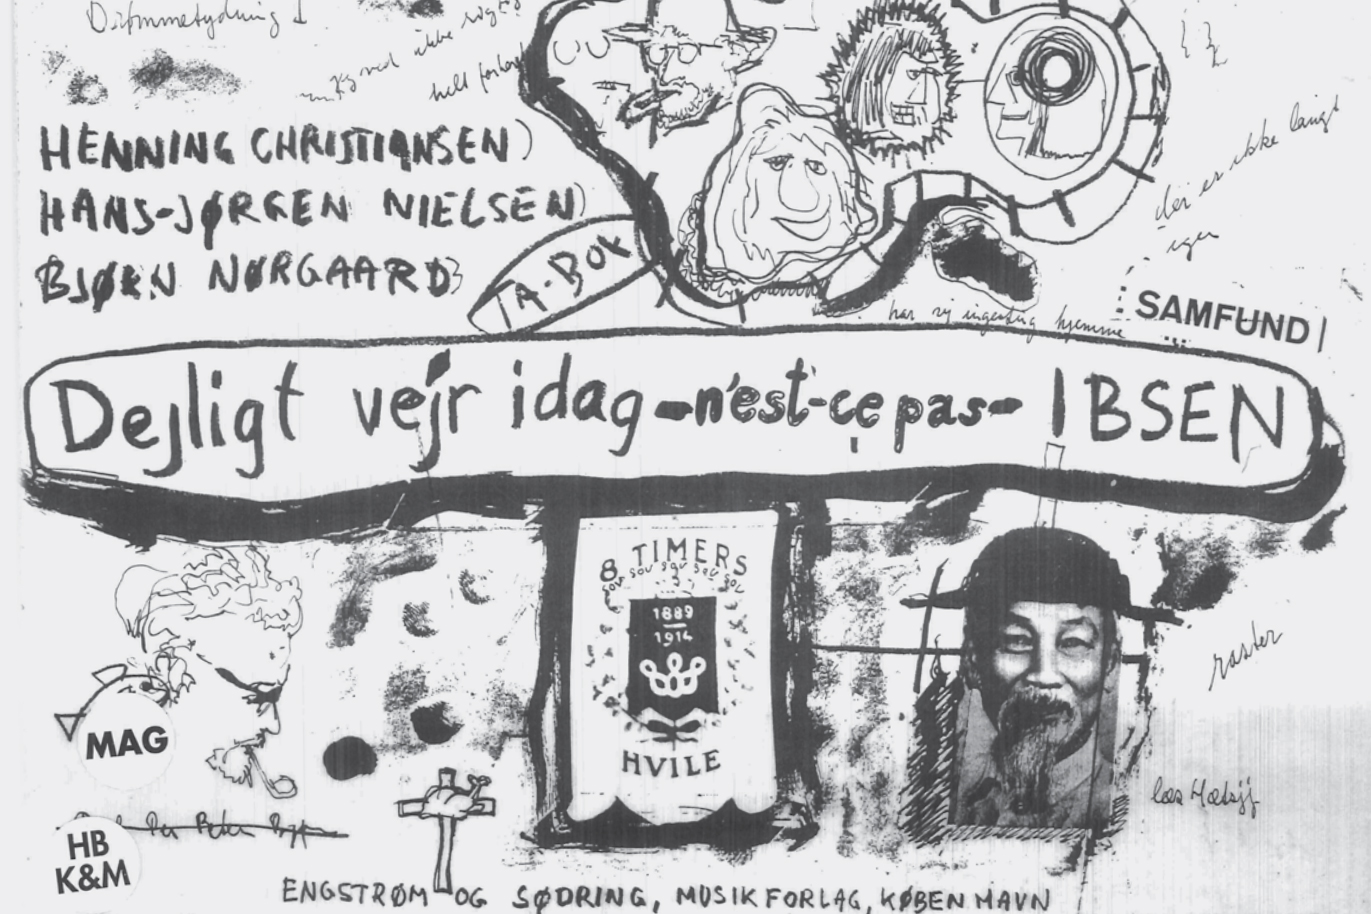 Drømmetydning I
jeg ved ikke rigtig
helt forlor
HENNING CHRISTIANSEN
HANS-JØRGEN NIELSEN
BJØRN NØRGAARD
TA-BOX
der er ikke langt
igen
har vi ingenting hjemme
SAMFUND
Dejligt vejr idag -n'est-ce pas- IBSEN
8 TIMERS
SOV SOV SOV SOV SOV
1889
1914
HVILE
MAG
HB
K&M
raster
læs
ENGSTRØM OG SØDRING, MUSIKFORLAG, KØBENHAVN